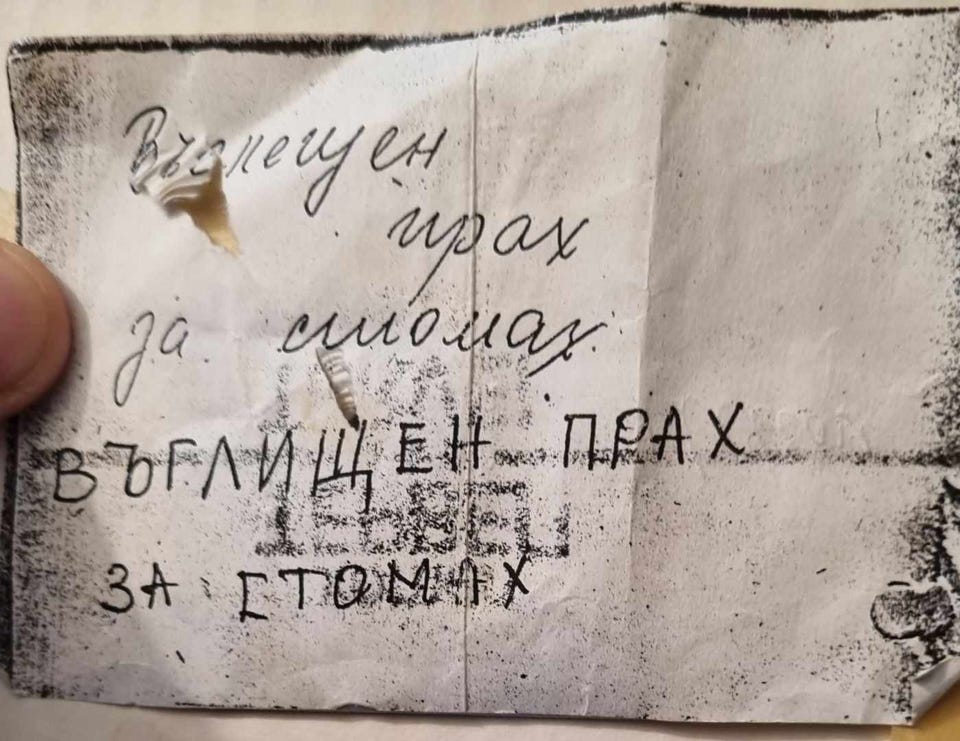 Въглещен
прах
за стомах
ВЪГЛИЩЕН ПРАХ
ЗА СТОМАХ